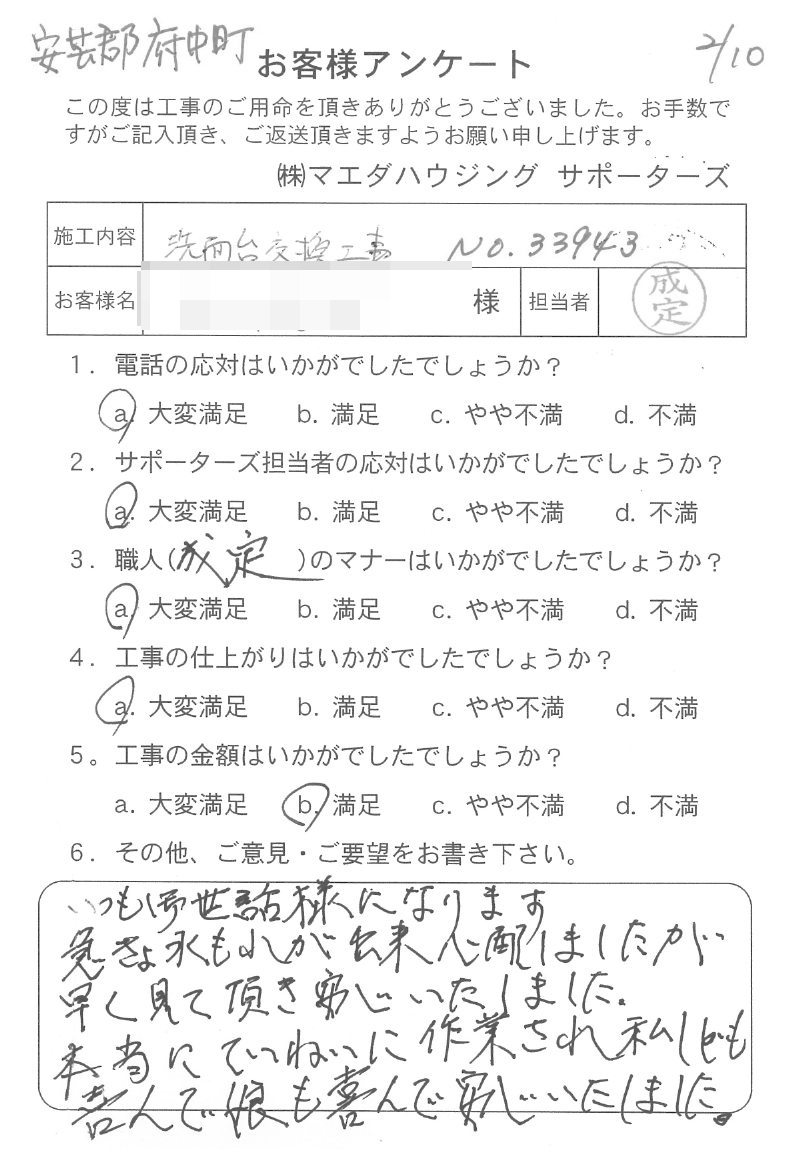 安芸郡府中町
2/10
お客様アンケート
この度は工事のご用命を頂きありがとうございました。お手数で
すがご記入頂き、ご返送頂きますようお願い申し上げます。
㈱マエダハウジング サポーターズ
施工内容 洗面台交換工事 NO.33943
お客様名 様 担当者 成定
1. 電話の応対はいかがでしたでしょうか?
a. 大変満足 b. 満足 c. やや不満 d. 不満
2. サポーターズ担当者の応対はいかがでしたでしょうか?
a. 大変満足 b. 満足 c. やや不満 d. 不満
3. 職人(成定)のマナーはいかがでしたでしょうか?
a. 大変満足 b. 満足 c. やや不満 d. 不満
4. 工事の仕上がりはいかがでしたでしょうか?
a. 大変満足 b. 満足 c. やや不満 d. 不満
5。工事の金額はいかがでしたでしょうか?
a. 大変満足 b. 満足 c. やや不満 d. 不満
6. その他、ご意見・ご要望をお書き下さい。
いつも御世話様になります
急きょ水もれが出来心配しましたが
早く見て頂き安心いたしました。
本当にていねいに作業され私しども
喜んで娘も喜んで安心いたしました。